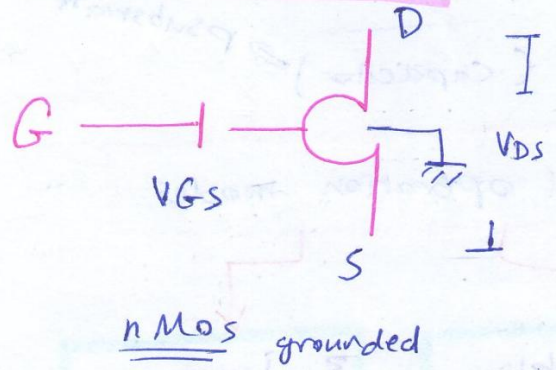 D
G
VGS
VDS
S
nMos grounded